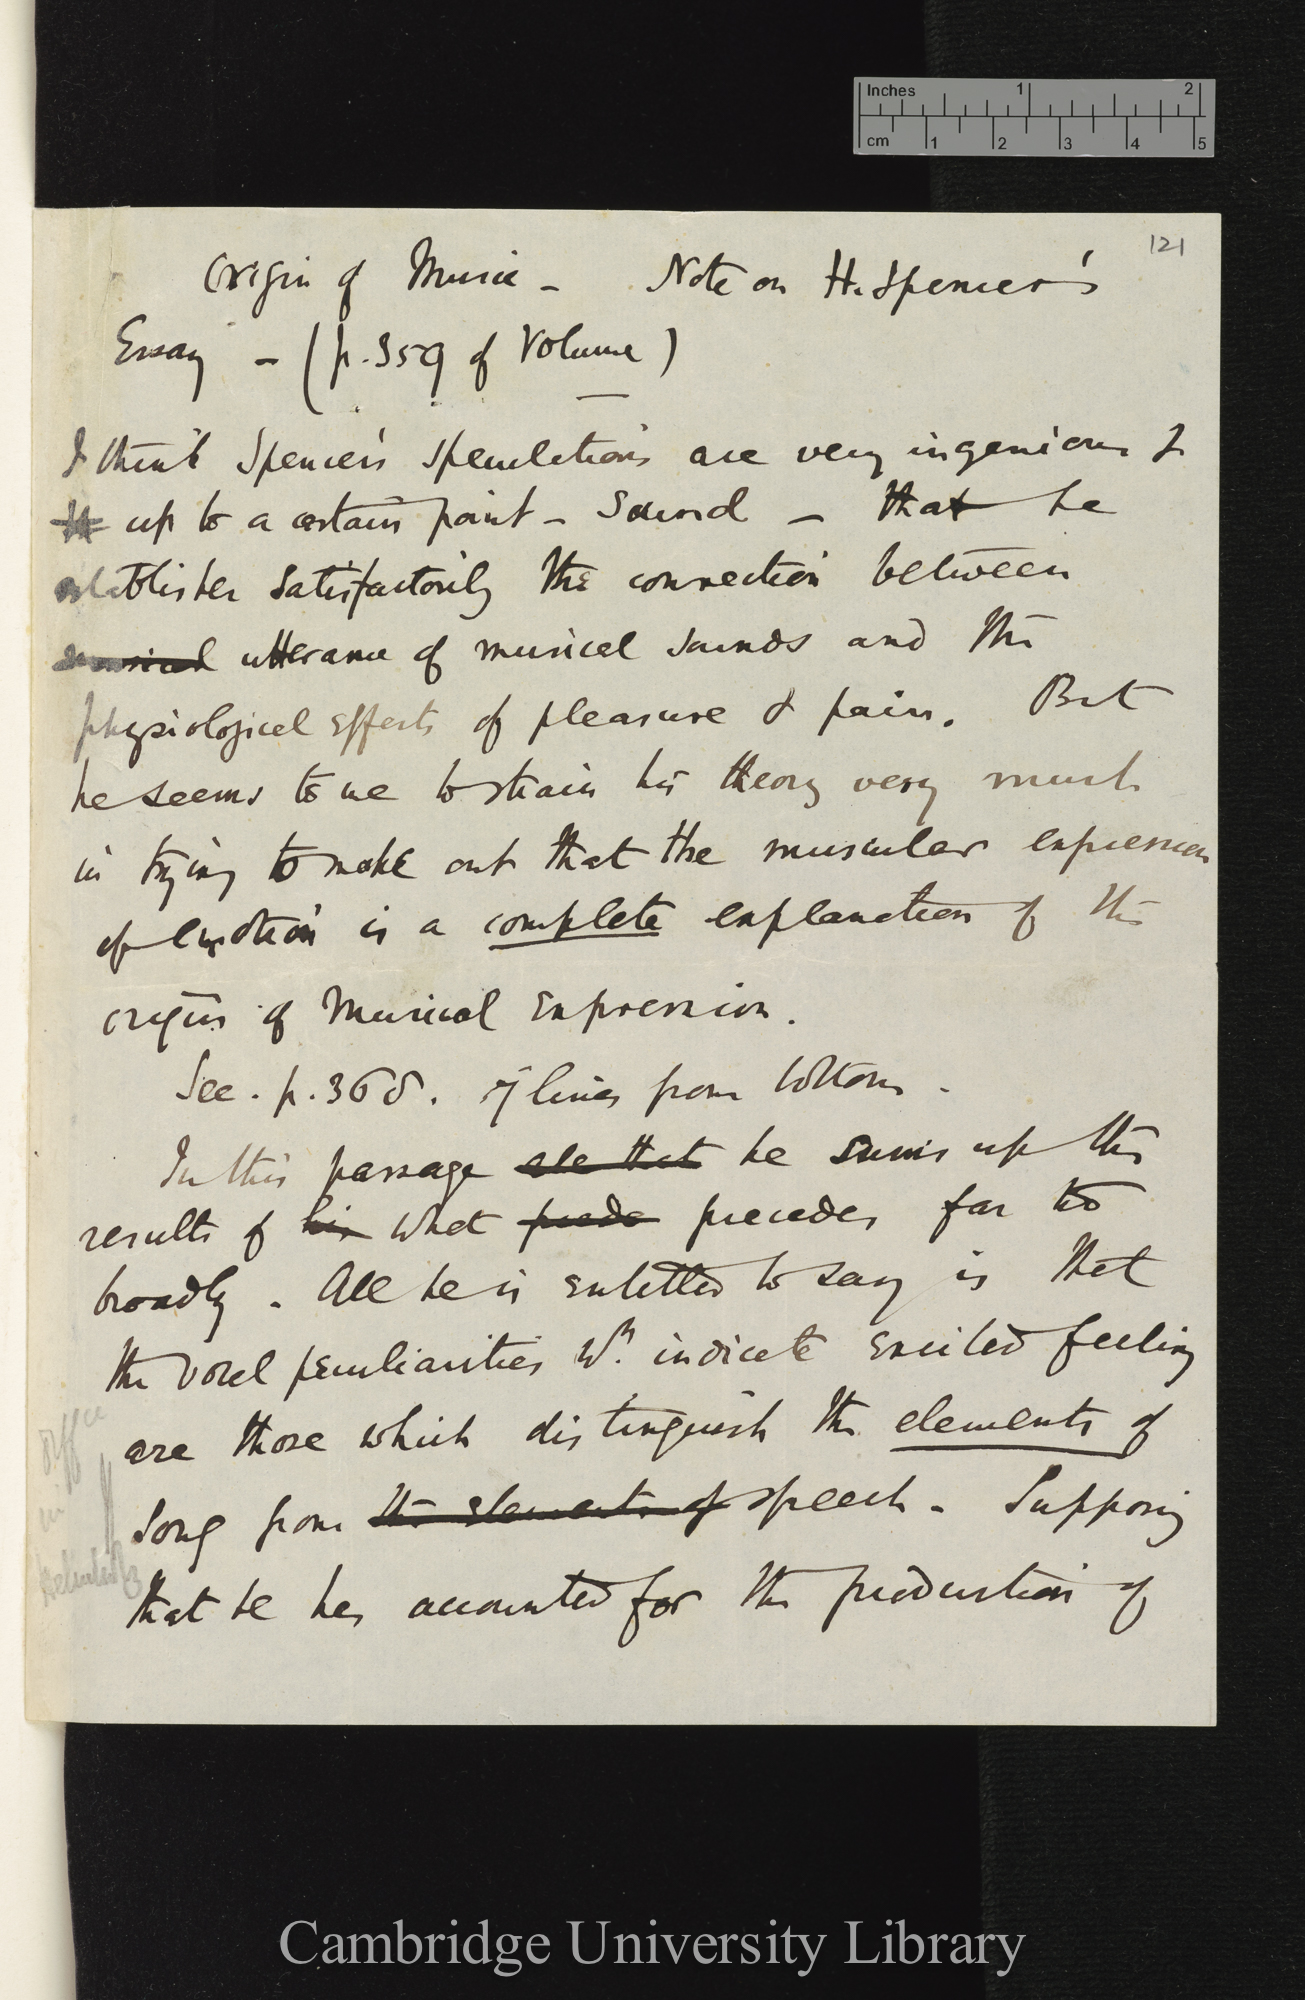 Inches 1 2
cm 1 2 3 4 5
121
Origin of Music - Note on H. Spencer's
Essay - (p. 359 of Volume)
I think Spencer's speculations are very ingenious &
up to a certain point - sound - that he
establishes satisfactorily the connection between
musical utterance of musical sounds and the
physiological effects of pleasure & pain. But
he seems to me to strain his theory very much
in trying to make out that the muscular expression
of emotion is a complete explanation of the
origin of Musical Expression.
See. p. 368. 7 lines from bottom.
In this passage that he sums up the
results of his what precedes far too
broadly. All he is entitled to say is that
the vocal peculiarities wh. indicate excited feeling
are those which distinguish the elements of
song from the elements of speech. Supposing
that he has accounted for the production of
Cambridge University Library